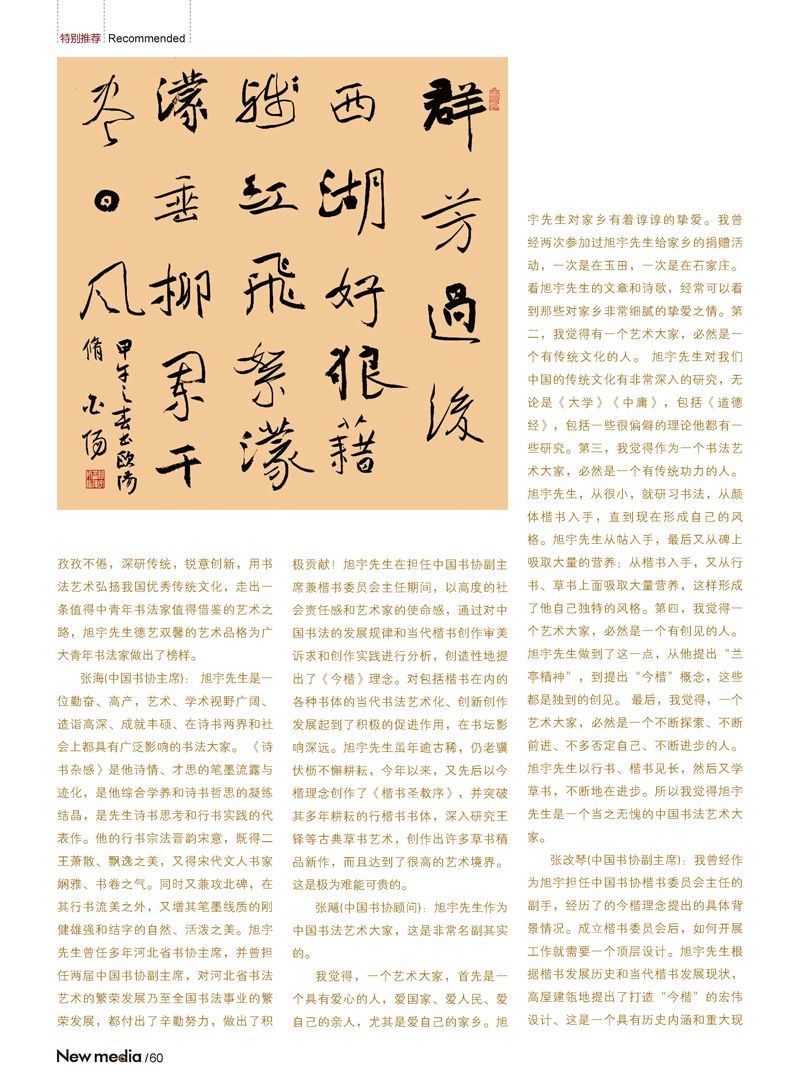 特别推荐 Recommended
群芳過後
西湖好狼藉
残红飛絮濛
濛垂柳阑干
尽日风
甲午之春书欧阳
脩
孜孜不倦，深研传统，锐意创新，用书
法艺术弘扬我国优秀传统文化，走出一
条值得中青年书法家值得借鉴的艺术之
路，旭宇先生德艺双馨的艺术品格为广
大青年书法家做出了榜样。
张海(中国书协主席)： 旭宇先生是一
位勤奋、高产，艺术、学术视野广阔、
造诣高深、成就丰硕、在诗书两界和社
会上都具有广泛影响的书法大家。 《诗
书杂感》是他诗情、才思的笔墨流露与
迹化，是他综合学养和诗书哲思的凝练
结晶，是先生诗书思考和行书实践的代
表作。他的行书宗法晋韵宋意，既得二
王萧散、飘逸之美，又得宋代文人书家
娴雅、书卷之气。同时又兼攻北碑，在
其行书流美之外，又增其笔墨线质的刚
健雄强和结字的自然、活泼之美。旭宇
先生曾任多年河北省书协主席，并曾担
任两届中国书协副主席，对河北省书法
艺术的繁荣发展乃至全国书法事业的繁
荣发展，都付出了辛勤努力，做出了积
极贡献！旭宇先生在担任中国书协副主
席兼楷书委员会主任期间，以高度的社
会责任感和艺术家的使命感，通过对中
国书法的发展规律和当代楷书创作审美
诉求和创作实践进行分析，创造性地提
出了《今楷》理念。对包括楷书在内的
各种书体的当代书法艺术化、创新创作
发展起到了积极的促进作用，在书坛影
响深远。旭宇先生虽年逾古稀，仍老骥
伏枥不懈耕耘，今年以来，又先后以今
楷理念创作了《楷书圣教序》，并突破
其多年耕耘的行楷书书体，深入研究王
铎等古典草书艺术，创作出许多草书精
品新作，而且达到了很高的艺术境界。
这是极为难能可贵的。
张飚(中国书协顾问)：旭宇先生作为
中国书法艺术大家，这是非常名副其实
的。
我觉得，一个艺术大家，首先是一
个具有爱心的人，爱国家、爱人民、爱
自己的亲人，尤其是爱自己的家乡。旭
宇先生对家乡有着谆谆的挚爱。我曾
经两次参加过旭宇先生给家乡的捐赠活
动，一次是在玉田，一次是在石家庄。
看旭宇先生的文章和诗歌，经常可以看
到那些对家乡非常细腻的挚爱之情。第
二，我觉得有一个艺术大家，必然是一
个有传统文化的人。 旭宇先生对我们
中国的传统文化有非常深入的研究，无
论是《大学》《中庸》，包括《道德
经》，包括一些很偏僻的理论他都有一
些研究。第三，我觉得作为一个书法艺
术大家，必然是一个有传统功力的人。
旭宇先生，从很小，就研习书法，从颜
体楷书入手，直到现在形成自己的风
格。旭宇先生从帖入手，最后又从碑上
吸取大量的营养；从楷书入手，又从行
书、草书上面吸取大量营养，这样形成
了他自己独特的风格。第四，我觉得一
个艺术大家，必然是一个有创见的人。
旭宇先生做到了这一点，从他提出“兰
亭精神”，到提出“今楷”概念，这些
都是独到的创见。 最后，我觉得，一个
艺术大家，必然是一个不断探索、不断
前进、不多否定自己、不断进步的人。
旭宇先生以行书、楷书见长，然后又学
草书，不断地在进步。所以我觉得旭宇
先生是一个当之无愧的中国书法艺术大
家。
张改琴(中国书协副主席)：我曾经作
为旭宇担任中国书协楷书委员会主任的
副手，经历了的今楷理念提出的具体背
景情况。成立楷书委员会后，如何开展
工作就需要一个顶层设计。旭宇先生根
据楷书发展历史和当代楷书发展现状，
高屋建瓴地提出了打造“今楷”的宏伟
设计、这是一个具有历史内涵和重大现
New media /60